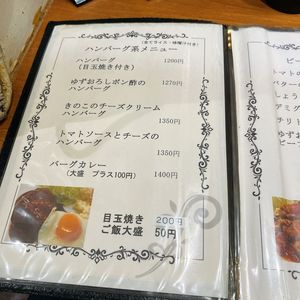 ハンバーグ系メニュー
(全てライス・味噌汁付き)
ハンバーグ 1200円
(目玉焼き付き)
ゆずおろしポン酢の
ハンバーグ 1270円
きのこのチーズクリーム
ハンバーグ 1350円
トマトソースとチーズの
ハンバーグ 1350円
バーグカレー 1400円
(大盛 プラス100円)
目玉焼き 200円
ご飯大盛 50円
ビー
トマトの
バターの
デミグ
チリト